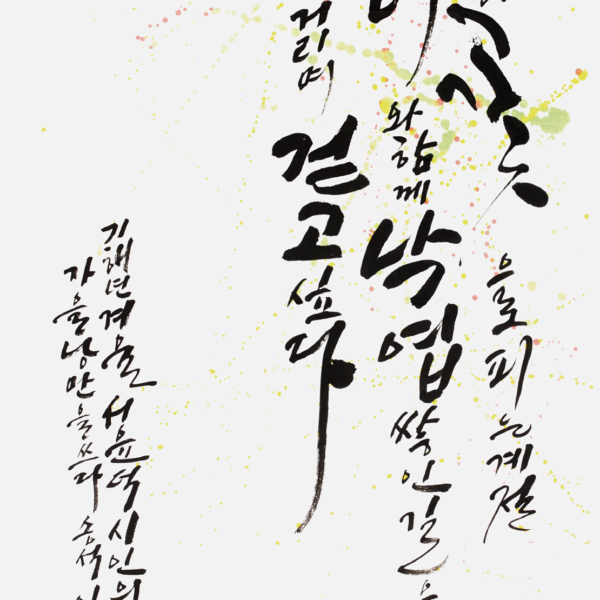 꽃으로 피는 계절
와 함께 낙엽 쌓인 길
거리며 걷고 싶다
기해년 겨울 서윤덕 시인의
가을 낭만을 쓰다 송석